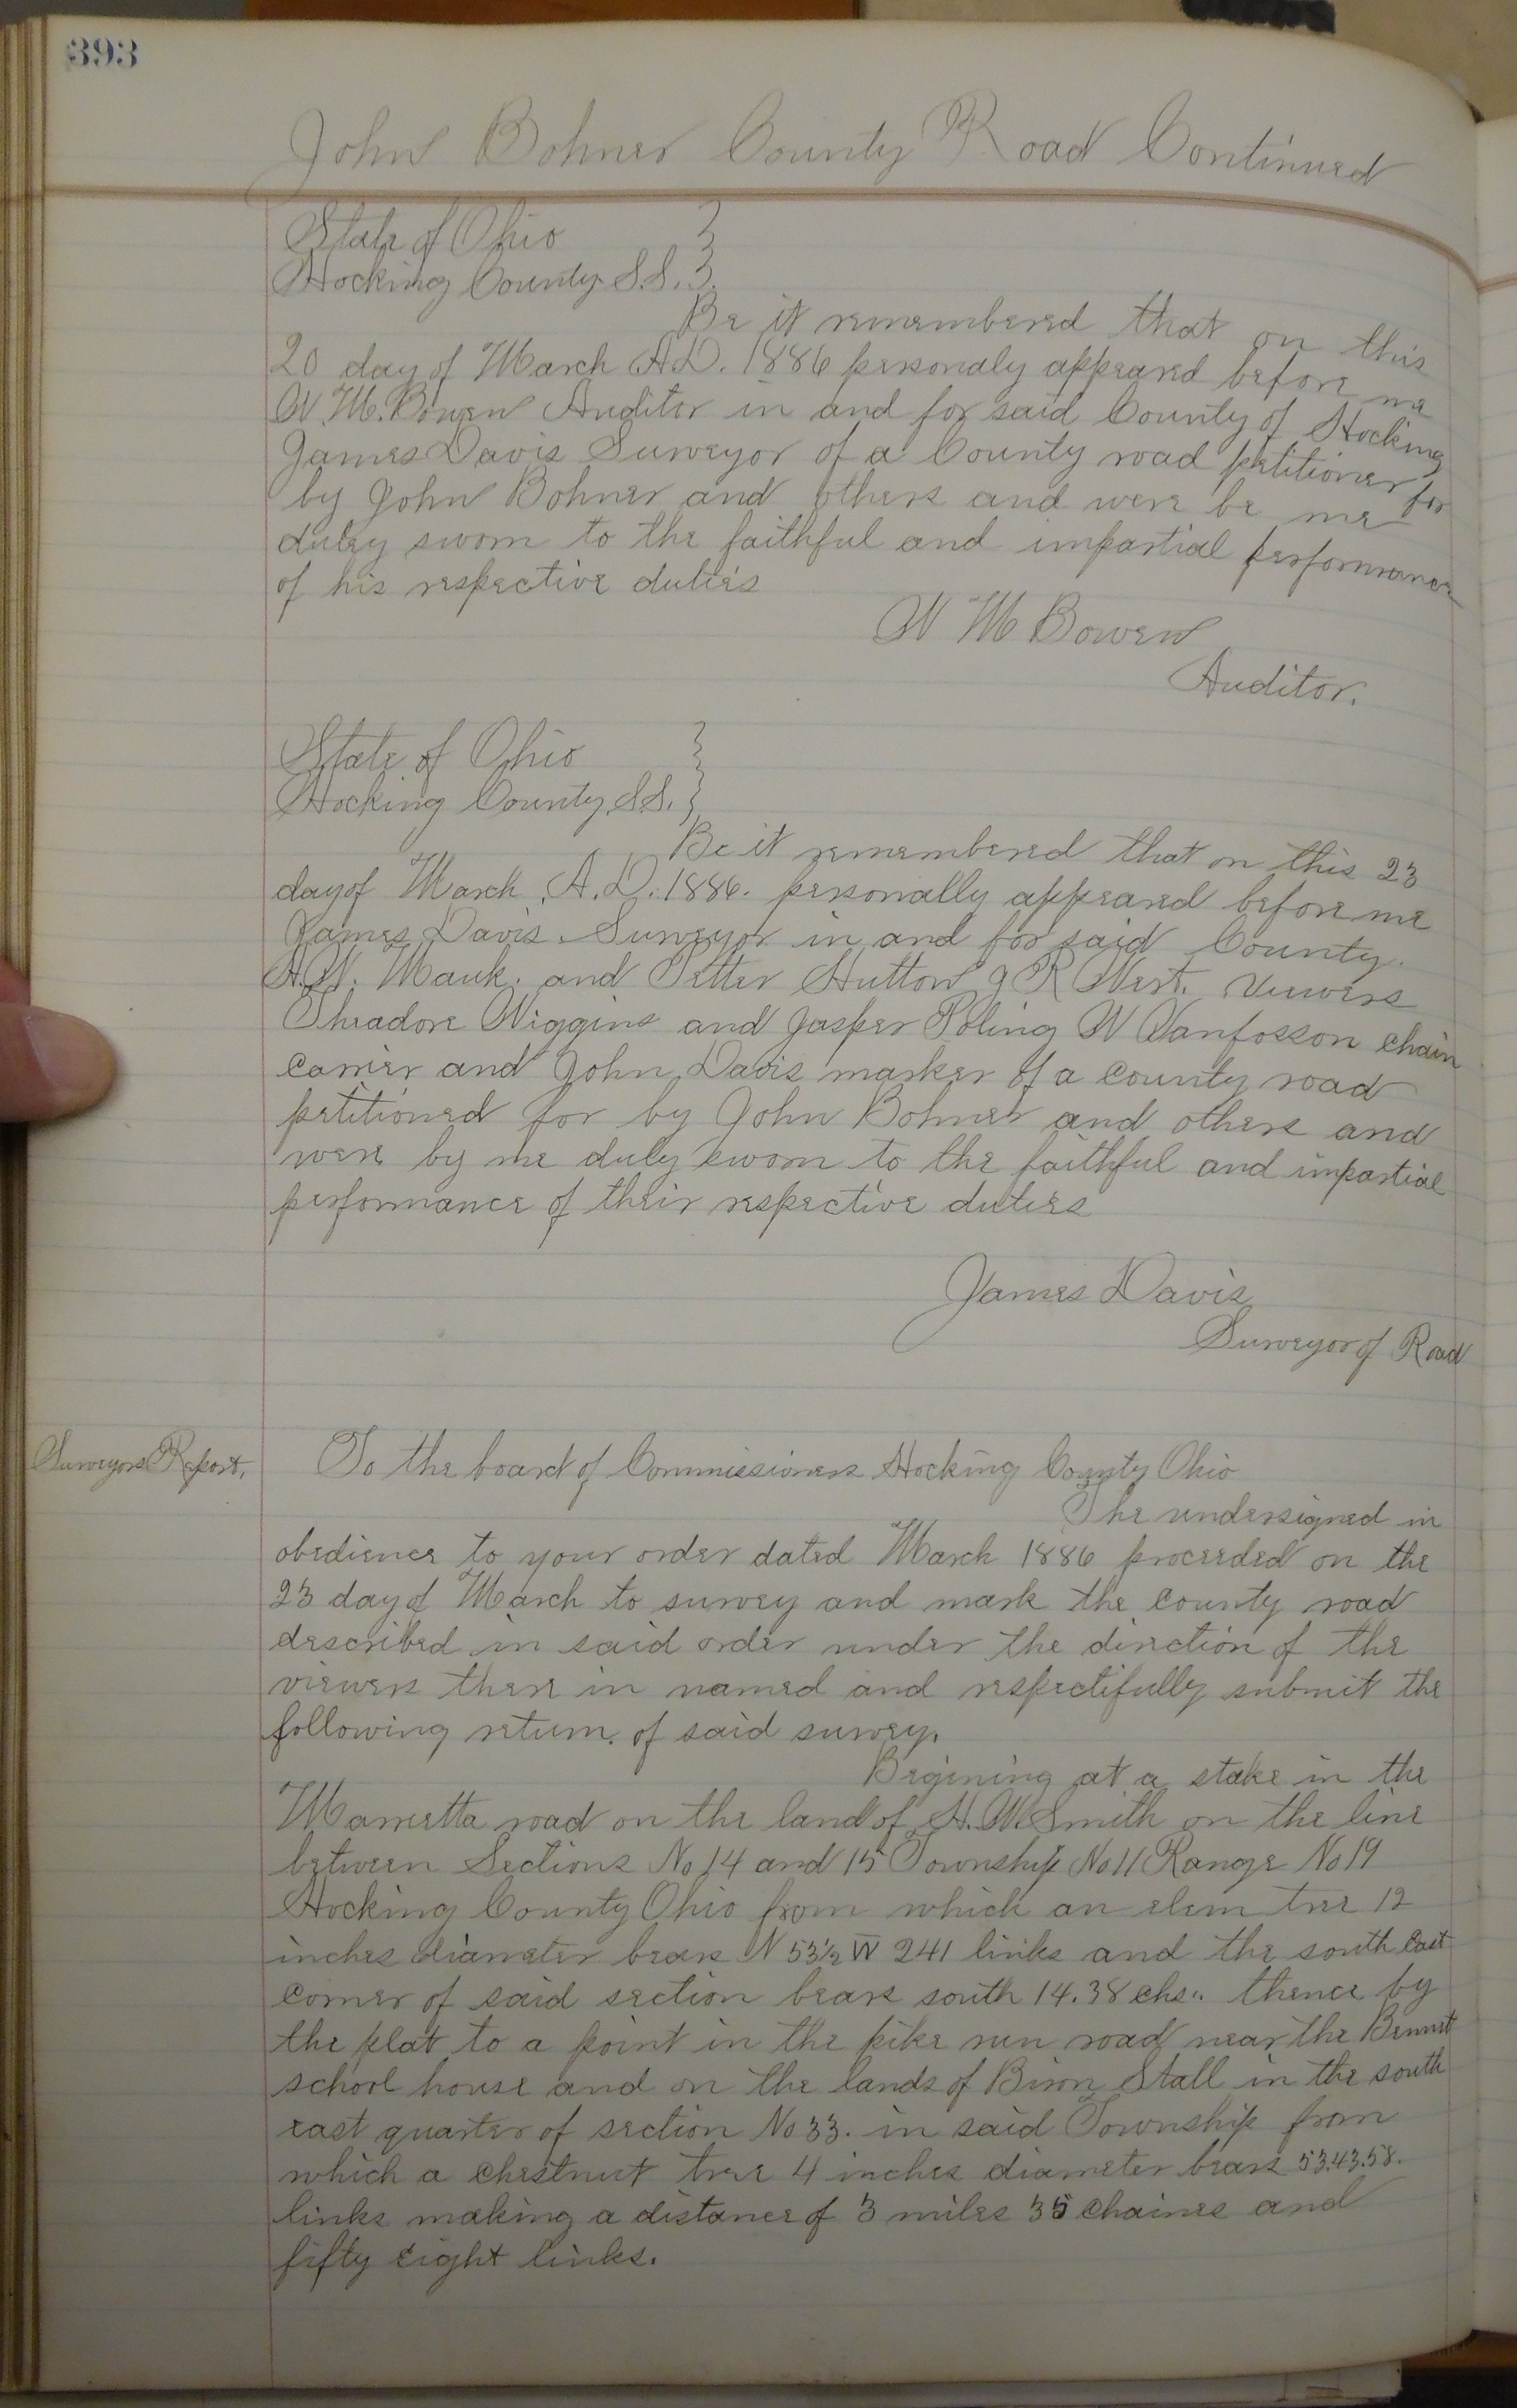 393
John Bohner County Road Continued
State of Ohio }
Hocking County S.S. }
Be it remembered that on this
20 day of March A.D. 1886 personaly appeared before me
W. M. Bowen Auditor in and for said County of Hocking
James Davis Surveyor of a County road petitioner for
by John Bohner and others and were be me
duley sworn to the faithful and impartial performance
of his respective duties
W M Bowen
Auditor.
State of Ohio }
Hocking County S.S. }
Be it remembered that on this 23
day of March A.D. 1886. personally appeared before me
James Davis. Surveyor in and for said County.
A.W. Mauk. and Petter Hutton J R West. Viewers
Theadore Wiggins and Jasper Poling W Vanfosson chain
carrier and John Davis marker of a county road
petitioned for by John Bohner and others and
were by me duly sworn to the faithful and impartial
performance of their respective duties
James Davis
Surveyor of Road
Surveyors Report.
To the board of Commissioners Hocking County Ohio
The undersigned in
obedience to your order dated March 1886 proceeded on the
23 day of March to survey and mark the county road
described in said order under the direction of the
viewers there in named and respectifully submit the
following return. of said survey.
Begining at a stake in the
Marretta road on the land of H.W. Smith on the line
between Sections No 14 and 15 Township No 11 Range No 19
Hocking County Ohio from which an elem tree 12
inches diameter bears N 53½ W 241 links and the south East
corner of said section bears south 14.38 chs.. thence by
the plat to a point in the pike run road near the Bennet
school house and on the lands of Biron Stall in the south
east quarter of section No 33. in said Township from
which a chestnut tree 4 inches diameter bears 53.43.58.
links making a distance of 3 miles 35 chaines and
fifty eight links.